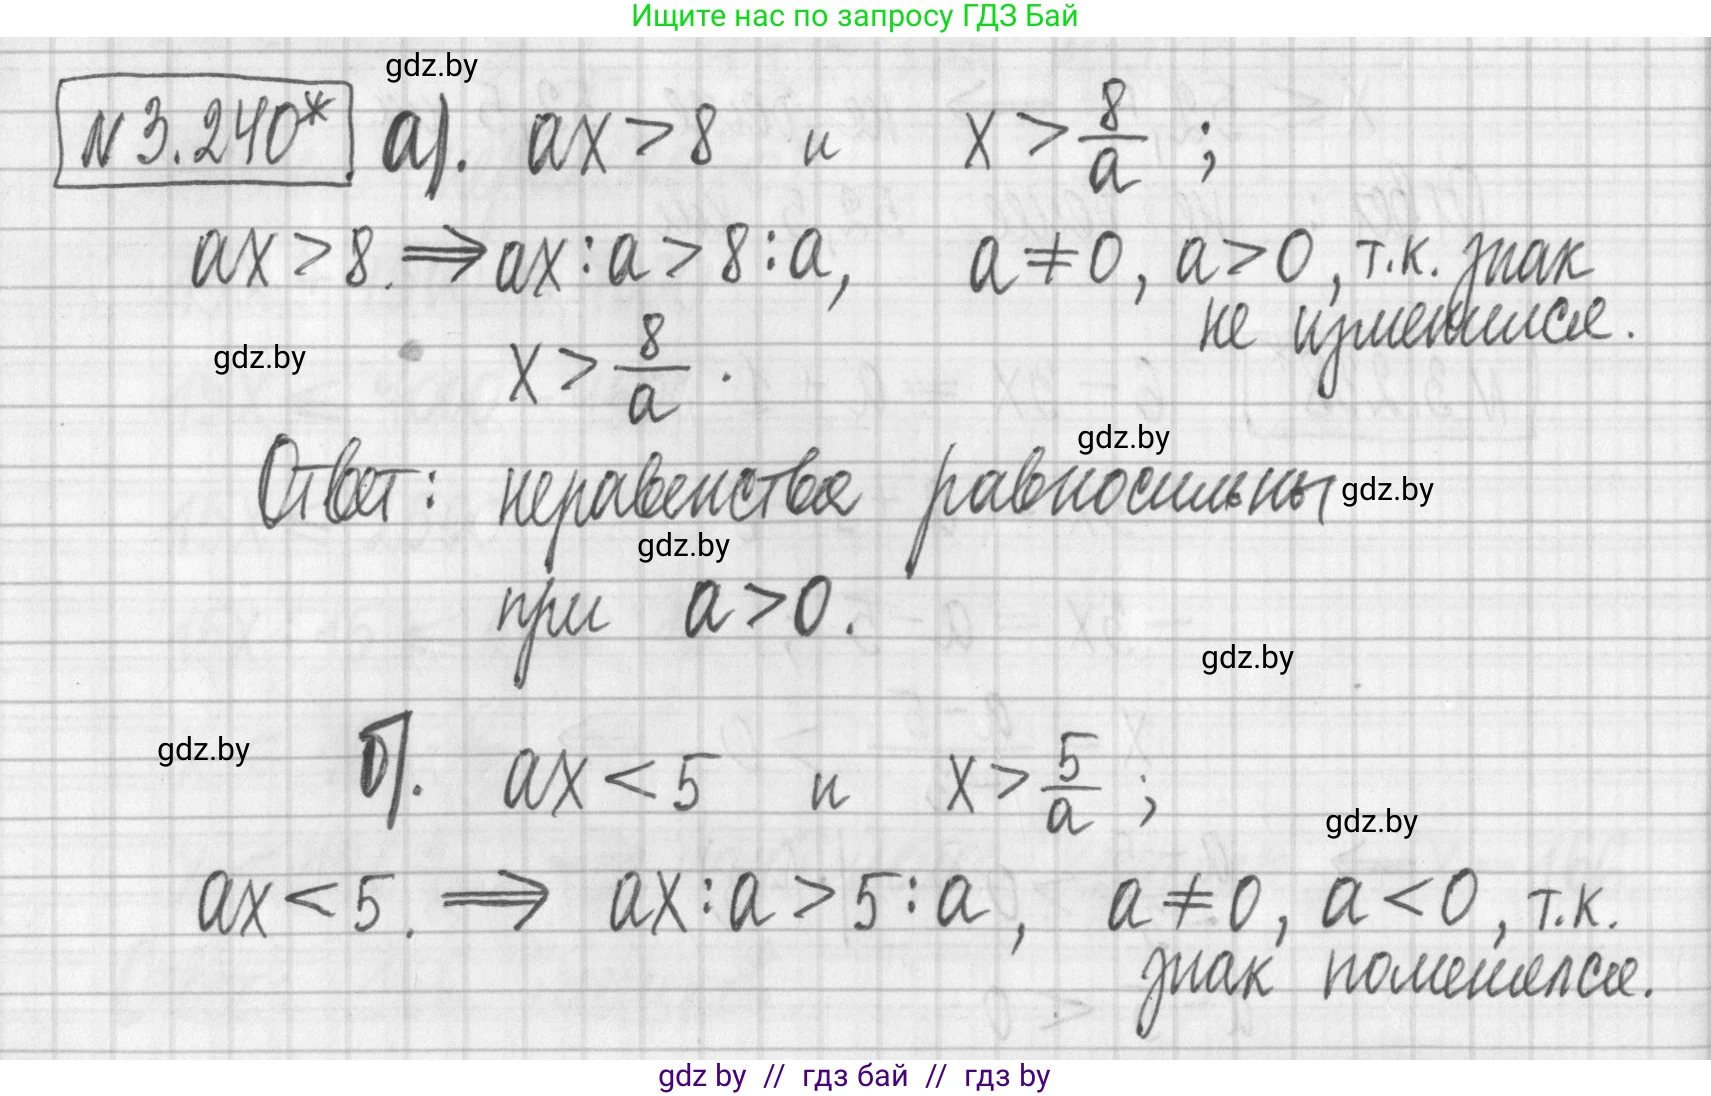 Ищите нас по запросу ГДЗ Бай
gdz.by
N 3.240* а). ax > 8 и x > 8/a ;
ax > 8. ⇒ ax : a > 8 : a, a ≠ 0, a > 0, т.к. знак
не изменился.
gdz.by
x > 8/a .
gdz.by
Ответ: неравенства равносильны
gdz.by
gdz.by
при a > 0.
gdz.by
gdz.by
б). ax < 5 и x > 5/a ;
gdz.by
ax < 5. ⇒ ax : a > 5 : a, a ≠ 0, a < 0, т.к.
знак поменялся.
gdz by // гдз бай // гдз by